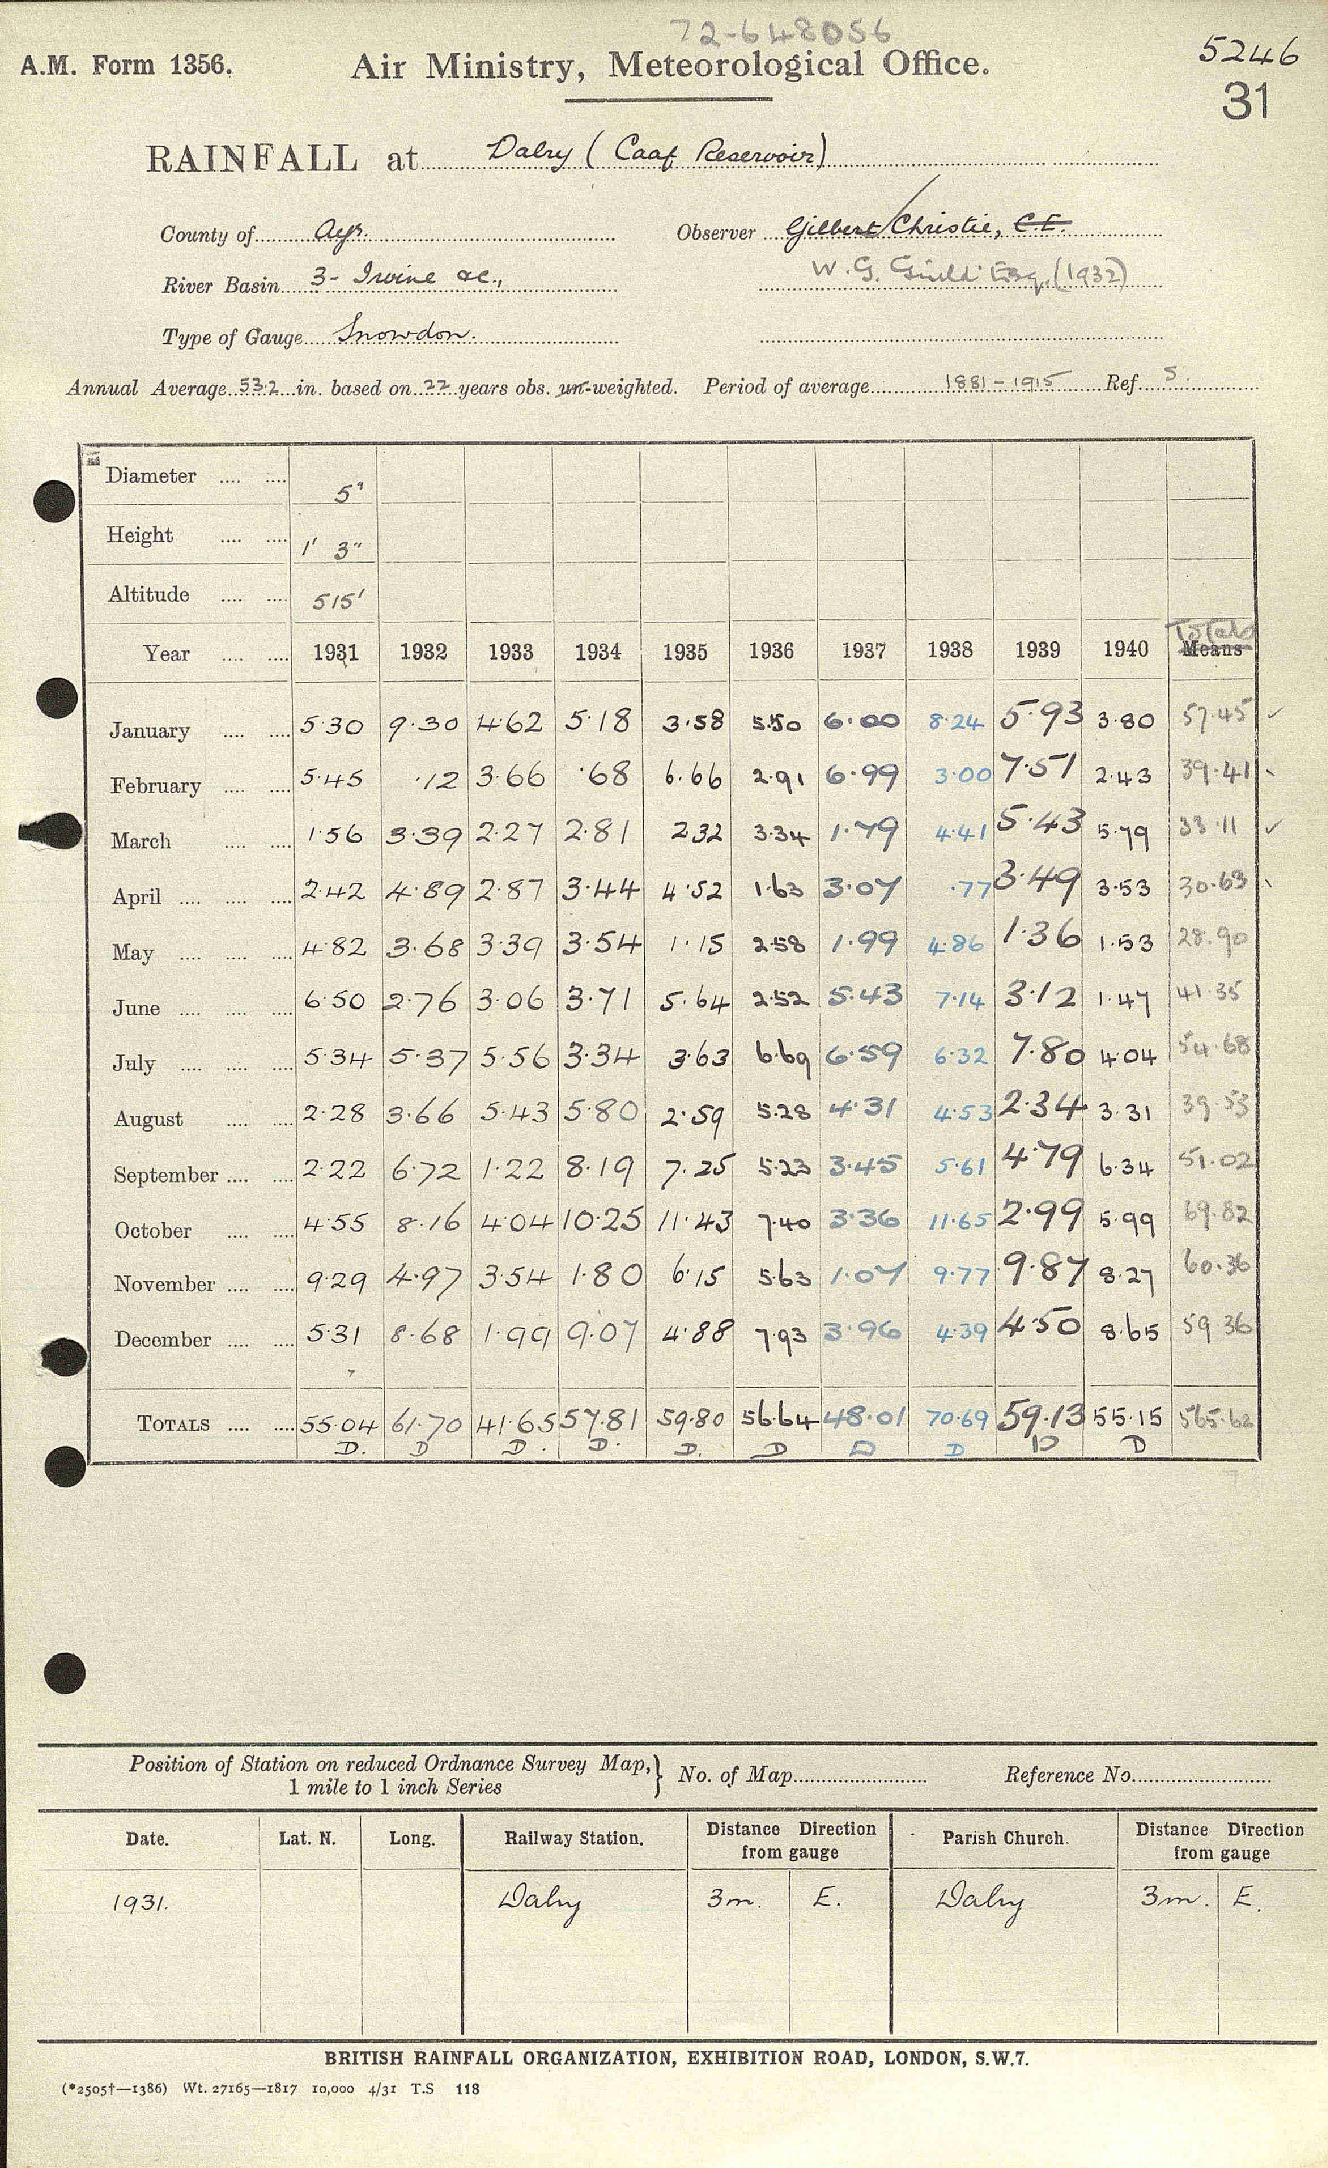 72-648056
A.M. Form 1356. Air Ministry, Meteorological Office. 5246
31
RAINFALL at Dalry (Caaf Reservoir)
County of Ayr. Observer Gilbert Christie, C.E.
River Basin 3- Irvine &c., W. G. Guild Esq. (1932)
Type of Gauge Snowdon.
Annual Average 53.2 in. based on 22 years obs. un-weighted. Period of average 1881-1915 Ref. 5.
Diameter 5"
Height 1' 3"
Altitude 515'
Totals
Year 1931 1932 1933 1934 1935 1936 1937 1938 1939 1940 Means
January 5.30 9.30 4.62 5.18 3.58 5.50 6.00 8.24 5.93 3.80 57.45 ✓
February 5.45 .12 3.66 .68 6.66 2.91 6.99 3.00 7.51 2.43 39.41
March 1.56 3.39 2.27 2.81 2.32 3.34 1.79 4.41 5.43 5.79 33.11 ✓
April 2.42 4.89 2.87 3.44 4.52 1.63 3.07 .77 3.49 3.53 30.63
May 4.82 3.68 3.39 3.54 1.15 2.58 1.99 4.86 1.36 1.53 28.90
June 6.50 2.76 3.06 3.71 5.64 2.52 5.43 7.14 3.12 1.47 41.35
July 5.34 5.37 5.56 3.34 3.63 6.69 6.59 6.32 7.80 4.04 54.68
August 2.28 3.66 5.43 5.80 2.59 5.28 4.31 4.53 2.34 3.31 39.53
September 2.22 6.72 1.22 8.19 7.25 5.23 3.45 5.61 4.79 6.34 51.02
October 4.55 8.16 4.04 10.25 11.43 7.40 3.36 11.65 2.99 5.99 69.82
November 9.29 4.97 3.54 1.80 6.15 5.63 1.07 9.77 9.87 8.27 60.36
December 5.31 8.68 1.99 9.07 4.88 7.93 3.96 4.39 4.50 8.65 59.36
TOTALS 55.04 61.70 41.65 57.81 59.80 56.64 48.01 70.69 59.13 55.15 565.62
D. D D. D. D. D D D D D
Position of Station on reduced Ordnance Survey Map, } No. of Map Reference No.
1 mile to 1 inch Series
Date. Lat. N. Long. Railway Station. Distance Direction from gauge Parish Church. Distance Direction from gauge
1931. Dalry 3m. E. Dalry 3m. E.
BRITISH RAINFALL ORGANIZATION, EXHIBITION ROAD, LONDON, S.W.7.
(*2505†—1386) Wt. 27165—1817 10,000 4/31 T.S 118